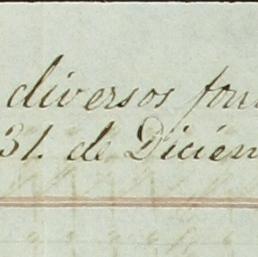 diversos fon
31. de Diciem